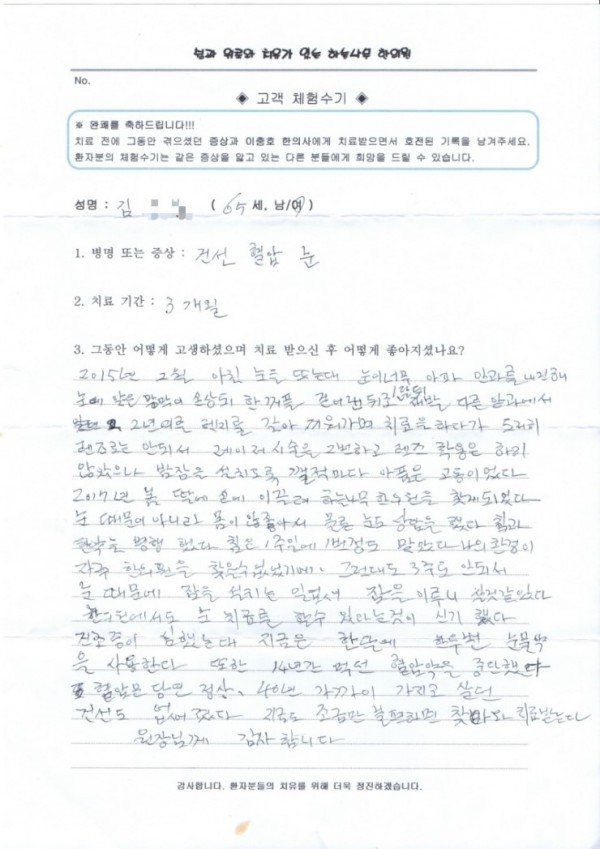 No.
◈ 고객 체험수기 ◈
※ 완쾌를 축하드립니다!!!
치료 전에 그동안 겪으셨던 증상과 이충호 한의사에게 치료받으면서 호전된 기록을 남겨주세요.
환자분의 체험수기는 같은 증상을 앓고 있는 다른 분들에게 희망을 드릴 수 있습니다.
성명 : 김 ( 65 세, 남/여 )
1. 병명 또는 증상 : 건선 혈압 눈
2. 치료 기간 : 3개월
3. 그동안 어떻게 고생하셨으며 치료 받으신 후 어떻게 좋아지셨나요?
2015년 2월 아침 눈을 뜨는대 눈이너무 아파 안과를 내진해
눈에 약은 각막이 손상되 한꺼풀 다른 안과에서
2년여를 렌즈를 갈아 끼워가며 치료을 하다가 5러히
렌즈로는 안되서 레이저 시술을 2번하고 렌즈 착용은 하지
않았으나 밤잠을 설치도록 깰적마다 아픔은 고통이었다
2017년 봄 딸에 손에 이끌려 하늘나무 한의원을 찾게되었다
눈 때문이 아니라 몸이 않좋아서 물론 눈도 상담을 했다 침과
한약을 병행 했다 침은 1주일에 1번정도 맞았다 나의환경이
자주 한의원을 찾을수없었기에. 그런대도 3주도 안되서
눈 때문에 잠을 설치는 일없이 잠을 이루니 살것같았다
한의원에서도 눈 치료를 할수 있다는것이 신기 했다
건조증이 심했는대 지금은 한달에 한두번 눈물약
을 사용한다 또한 14년간 먹던 혈압약을 중단했다
혈압은 당연 정상. 40년 가까이 가지고 살던
건선도 없어 졌다 지금도 조금만 불편하면 찾아와 치료받는다
원장님께 감사 합니다
감사합니다. 환자분들의 치유를 위해 더욱 정진하겠습니다.